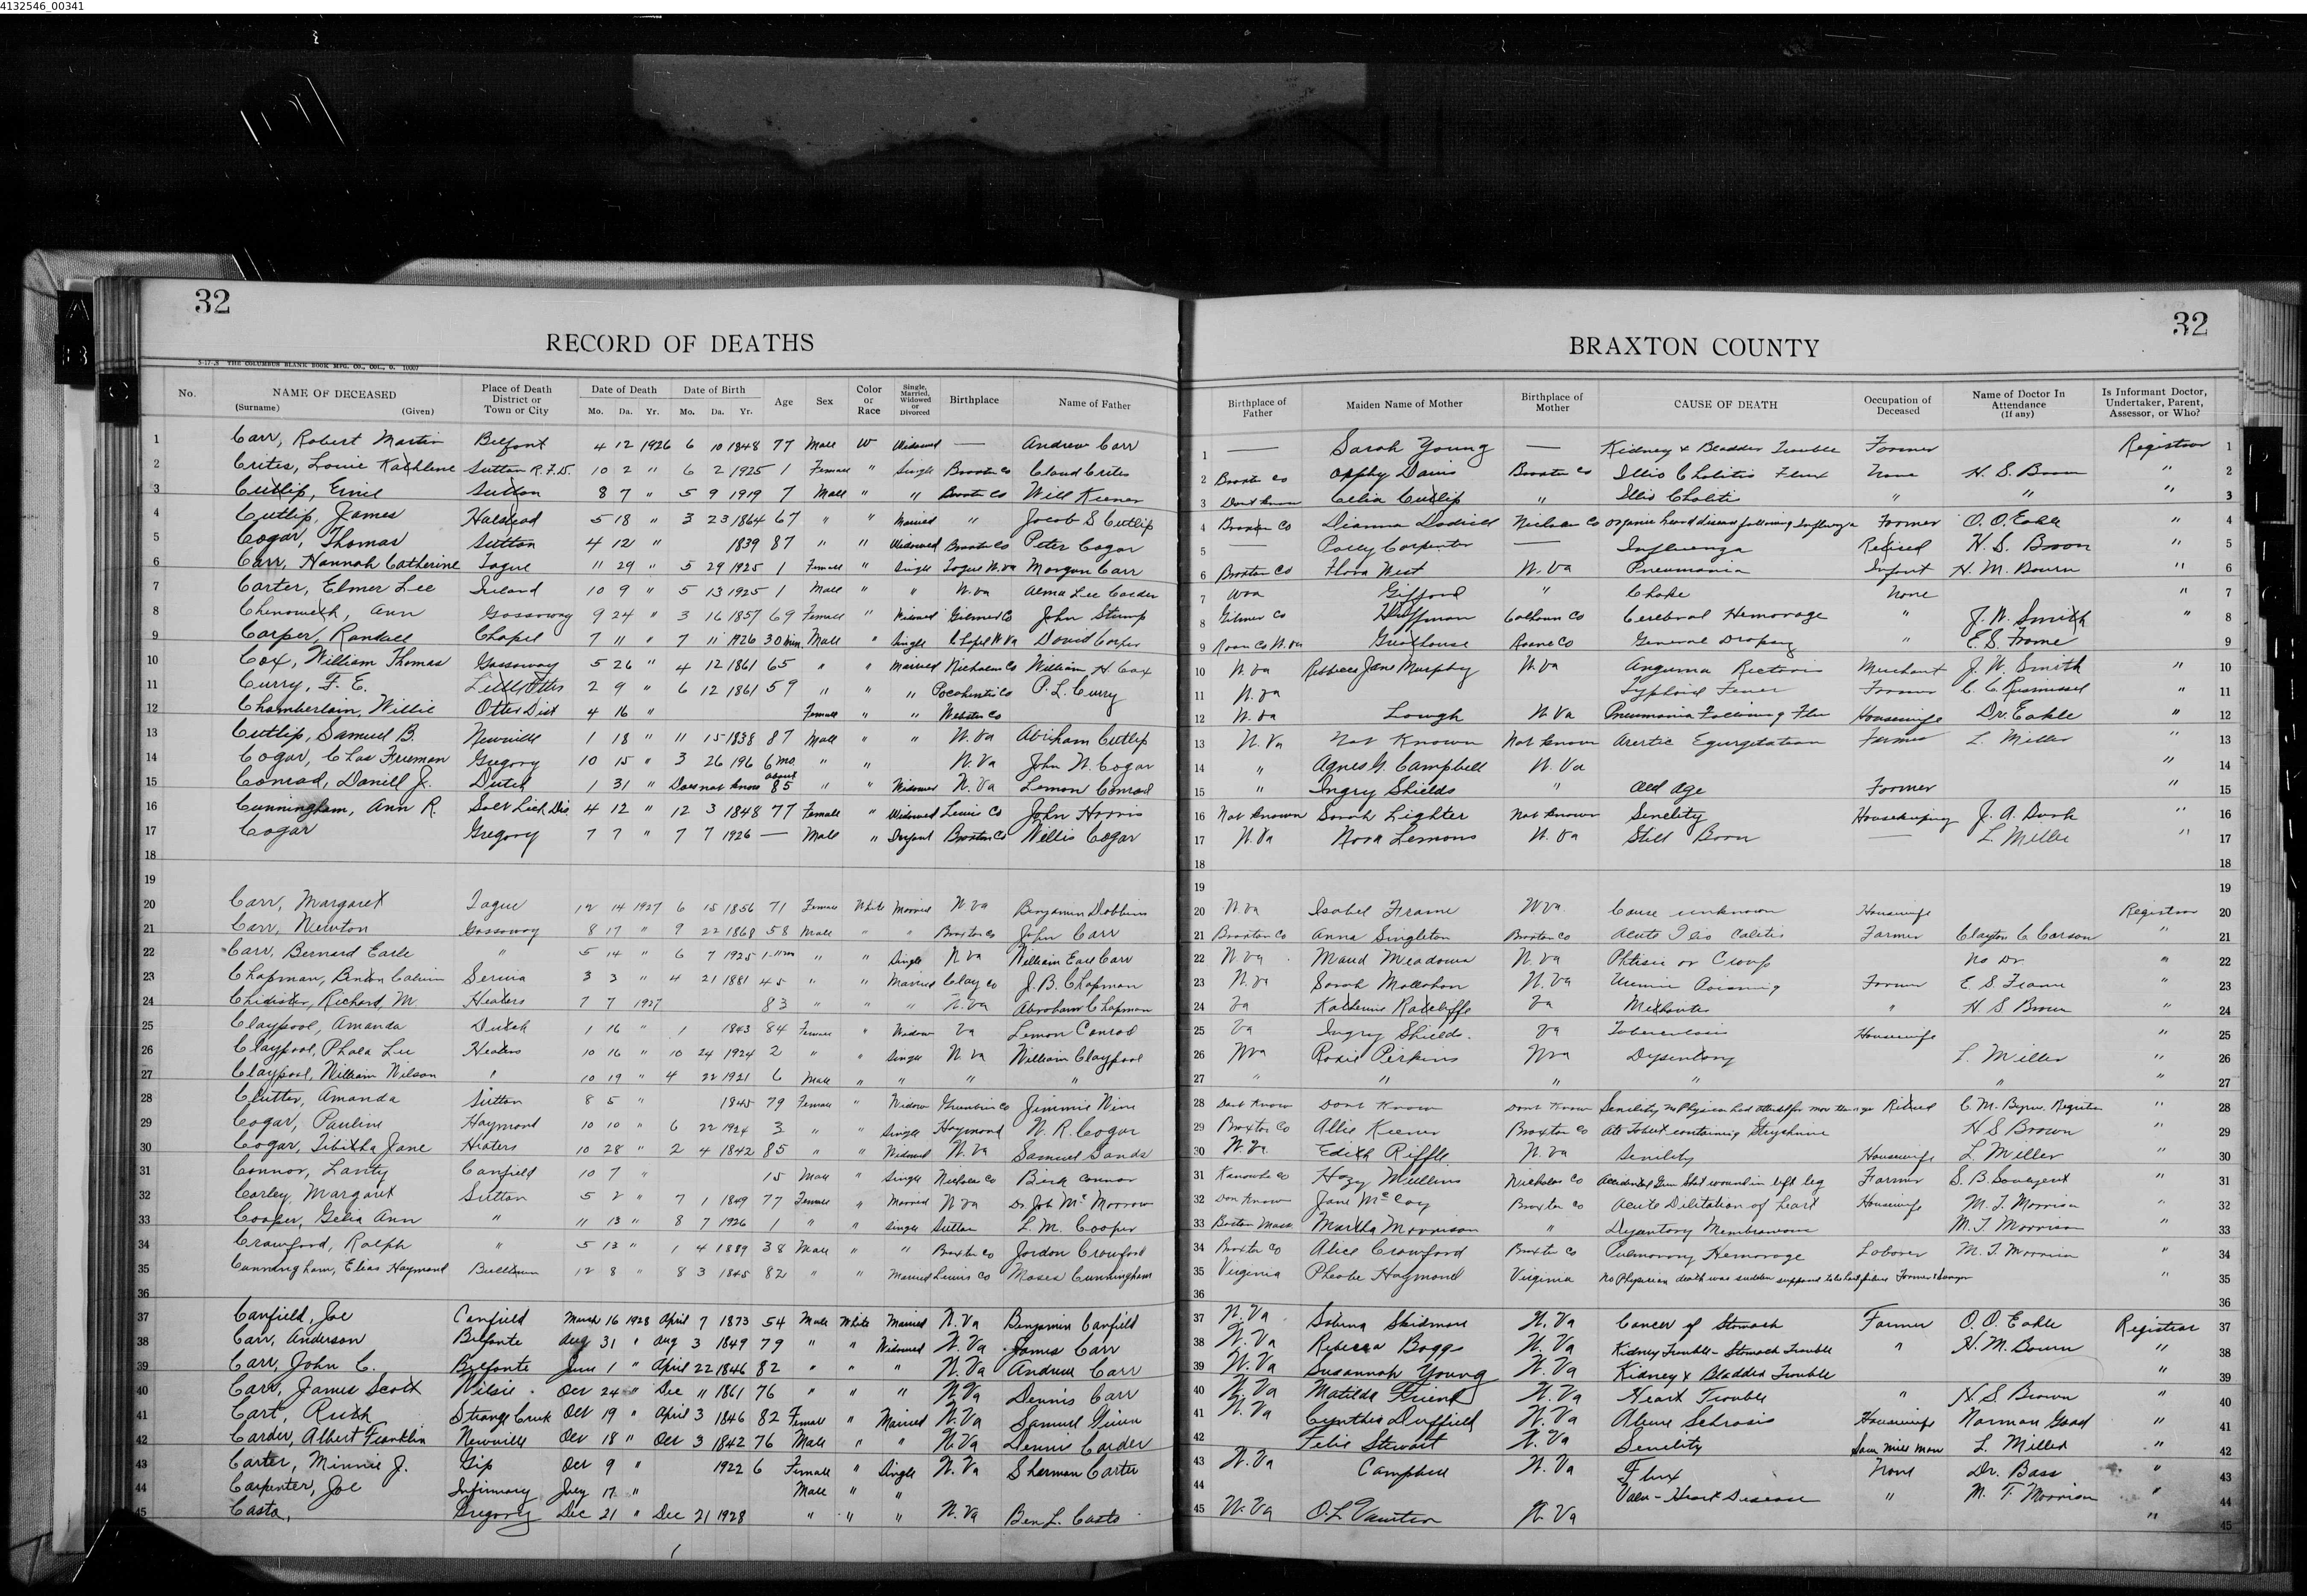 4132546_00341
32
RECORD OF DEATHS
THE COLUMBUS BLANK BOOK MFG. CO., COL., O. 10007
No. NAME OF DECEASED (Surname) (Given) Place of Death District or Town or City Date of Death Mo. Da. Yr. Date of Birth Mo. Da. Yr. Age Sex Color or Race Single, Married, Widowed or Divorced Birthplace Name of Father
1 Carr, Robert Martin Belfont 4 12 1926 6 10 1848 77 Male W Widowed — Andrew Carr
2 Crites, Louie Kathlene Sutton R.F.D. 10 2 " 6 2 1925 1 Female " Single Braxton Co Claud Crites
3 Cutlip, Ernie Sutton 8 7 " 5 9 1919 7 Male " " Braxton Co Will Keener
4 Cutlip, James Halstead 5 18 " 3 23 1864 67 " " Married " Jacob S Cutlip
5 Cogar, Thomas Sutton 4 12 " 1839 87 " " Widowed Braxton Co Peter Cogar
6 Carr, Hannah Catherine Tague 11 29 " 5 29 1925 1 Female " Single Tague W.Va Morgan Carr
7 Carter, Elmer Lee Ireland 10 9 " 5 13 1925 1 Male " " W.Va Alma Lee Carder
8 Chenowith, Ann Gassaway 9 24 " 3 16 1857 69 Female " Widowed Gilmer Co John Stump
9 Carper, Randall Chapel 7 11 " 7 11 1926 30 min. Male " Single Chapel W Va David Carper
10 Cox, William Thomas Gassaway 5 26 " 4 12 1861 65 " " Married Nicholas Co William H. Cox
11 Curry, F. E. Little Otter 2 9 " 6 12 1861 59 " " " Pocahontas Co P. L. Curry
12 Chamberlain, Willie Otter Dist 4 16 " Female " " Webster Co
13 Cutlip, Samuel B. Newville 1 18 " 11 15 1838 87 Male " " W.Va Abraham Cutlip
14 Cogar, Chas Freeman Gregory 10 15 " 3 26 196 6 mo. " " W.Va John W. Cogar
15 Conrad, Daniell J. Dutch 1 31 " Does not know about 85 " " Widower W.Va Lemon Conrad
16 Cunningham, Ann R. Salt Lick Dis 4 12 " 12 3 1848 77 Female " Widowed Lewis Co John Harris
17 Cogar Gregory 7 7 " 7 7 1926 — Male " Infant Braxton Co Willis Cogar
18
19
20 Carr, Margaret Tague 12 14 1927 6 15 1856 71 Female White Married W Va Benjamin Dobbins
21 Carr, Newton Gassaway 8 17 " 9 22 1868 58 Male " " Braxton Co John Carr
22 Carr, Bernard Earle " 5 14 " 6 7 1925 " " Single W Va William Earl Carr
23 Chapman, Benton Calvin Servia 3 3 " 4 21 1881 45 " " Married Clay Co J. B. Chapman
24 Chidister, Richard M. Heaters 7 7 1927 83 " " " W.Va Abraham Chapman
25 Claypool, Amanda Dutch 1 16 " 1 1843 84 Female " Widow Va Lemon Conrad
26 Claypool, Phala Lee Heaters 10 16 " 10 24 1924 2 " " Single W. Va William Claypool
27 Claypool, William Wilson " 10 19 " 4 22 1921 6 Male " " " "
28 Clutter, Amanda Sutton 8 5 " 1845 79 Female " Widow Greenbrier Co Jimmie Wine
29 Cogar, Pauline Haymond 10 10 " 6 22 1924 3 " " Single Haymond W. R. Cogar
30 Cogar, Tibitha Jane Heaters 10 28 " 2 4 1842 85 " " Widowed W. Va Samuel Sands
31 Connor, Lanty Canfield 10 7 " 15 Male " Single Nicholas Co Birk Connor
32 Corley, Margaret Sutton 5 2 " 7 1 1849 77 Female " Married W Va Dr. Job McMorrow
33 Cooper, Gelia Ann " 11 13 " 8 7 1926 1 " " Single Sutton L. M. Cooper
34 Crawford, Ralph " 5 13 " 1 4 1889 38 Male " " Braxton Co Jordon Crawford
35 Cunningham, Elias Haymond Bulltown 12 8 " 8 3 1845 82 " " Married Lewis Co Moses Cunningham
36
37 Canfield, Joe Canfield March 16 1928 April 7 1873 54 Male White Married W. Va Benjamin Canfield
38 Carr, Anderson Belfonte Aug 31 " Aug 3 1849 79 " " Widowed W. Va James Carr
39 Carr, John C. Belfonte June 1 " April 22 1846 82 " " " W. Va Andrew Carr
40 Carr, James Scott Wilsie Oct 24 " Dec 11 1861 76 " " " W. Va Dennis Carr
41 Cart, Ruth Strange Creek Oct 19 " April 3 1846 82 Female " Married W. Va Samuel Given
42 Carder, Albert Franklin Newville Oct 18 " Oct 3 1842 76 Male " " W. Va Dennis Carder
43 Carter, Minnie J. Gip Oct 9 " 1922 6 Female " Single W. Va Sherman Carter
44 Carpenter, Joe Infirmary July 17 " Male " "
45 Casto, Gregory Dec 21 " Dec 21 1928 " " " W. Va Ben L. Casto
32
BRAXTON COUNTY
Birthplace of Father Maiden Name of Mother Birthplace of Mother CAUSE OF DEATH Occupation of Deceased Name of Doctor In Attendance (If any) Is Informant Doctor, Undertaker, Parent, Assessor, or Who?
1 — Sarah Young — Kidney & Bladder Trouble Farmer Registrar 1
2 Braxton Co Opphy Davis Braxton Co Illio Cholitis Flux None H. S. Brown " 2
3 Dont know Celia Cutlip " Illio Choliti " " " 3
4 Braxton Co Dianna Dodrill Nicholas Co Organic heart disease following Influenza Farmer O. O. Eakle " 4
5 — Polly Carpenter — Influenza Retired H. S. Brown " 5
6 Braxton Co Flora West W. Va Pneumonia Infant H. M. Bourn " 6
7 Wva Gifford " Choke None " 7
8 Gilmer Co Huffman Calhoun Co Cerebral Hemorage " J. W. Smith " 8
9 Roan Co W. Va Greathouse Roane Co General Dropsy " E. S. Frame 9
10 W. Va Rebecca Jane Murphy W. Va Anguma Rictoris Merchant J. W. Smith " 10
11 W. Va Typhoid Fever Farmer C. C. Rusmissel " 11
12 W. Va Lough W. Va Pneumonia Following Flu Housewife Dr. Eakle " 12
13 W. Va Not Known Not known Arertic Egurgetation Farmer L. Miller " 13
14 " Agnes G. Campbell W. Va " 14
15 " Ingry Shields " Old age Farmer " 15
16 Not known Sarah Lighter Not known Senelity Housekeeping J. A. Rusk " 16
17 W. Va Nora Lemons W. Va Still Born — L. Miller " 17
18 18
19 19
20 W. Va Isabel Frame W Va. Cause unknown Housewife Registrar 20
21 Braxton Co Anna Singleton Braxton Co Acute Ilio Calitis Farmer Clayton C Carson " 21
22 W Va Maud Meadows W. Va Phtisic or Croup No Dr " 22
23 W. Va Sarah Mollohon W. Va Uremic Poisoning Farmer E. S. Frame " 23
24 Va Katherine Ratcliffe Va " H. S. Brown " 24
25 Va Ingry Shields. Va Tuberculosis Housewife " 25
26 Wva Roxie Perkins Wva Dysentery L. Miller " 26
27 " " " " " " 27
28 Dont Know Dont Know Dont Know Senility No Physician had attended for more than yr Retired C. M. Byrne, Registrar " 28
29 Braxton Co Allie Keener Braxton Co Ate Tablet containing Strychnine H S Brown " 29
30 W. Va Edith Riffle W. Va Senility Housewife L Miller " 30
31 Kanawha Co Hozy Mullins Nicholas Co Accidental Gun Shot wound in left leg Farmer S. B. Sovagent " 31
32 Don Know Jane McCoy Braxton Co Acute Dilitation of heart Housewife M. T. Morrison " 32
33 Boston Mass. Martha Morrison " Dysentory Membranous M. T. Morrison " 33
34 Braxton Co Alice Crawford Braxton Co Pulmonary Hemorage Laborer M. T. Morrison " 34
35 Virginia Phoebe Haymond Virginia No Physician death was sudden supposed to be heart failure Farmer & Lawyer " 35
36 36
37 W. Va Sabina Skidmore W. Va Cancer of Stomach Farmer O. O. Eakle Registrar 37
38 W. Va Rebecca Boggs W. Va Kidney Trouble - Stomach Trouble " H. M. Bourn " 38
39 W. Va Susannah Young W. Va Kidney & Bladder Trouble " 39
40 W. Va Matilda Friend W. Va Heart Trouble " H. S. Brown " 40
41 W. Va Cynthia Duffield W. Va Housewife Norman Goad " 41
42 Felie Stewart W. Va Senility Saw Mill Man L. Miller " 42
43 W. Va Campbell W. Va Flux None Dr. Bass " 43
44 Valv - Heart Disease " M. T. Morrison " 44
45 W. Va O. L. W. Va " 45